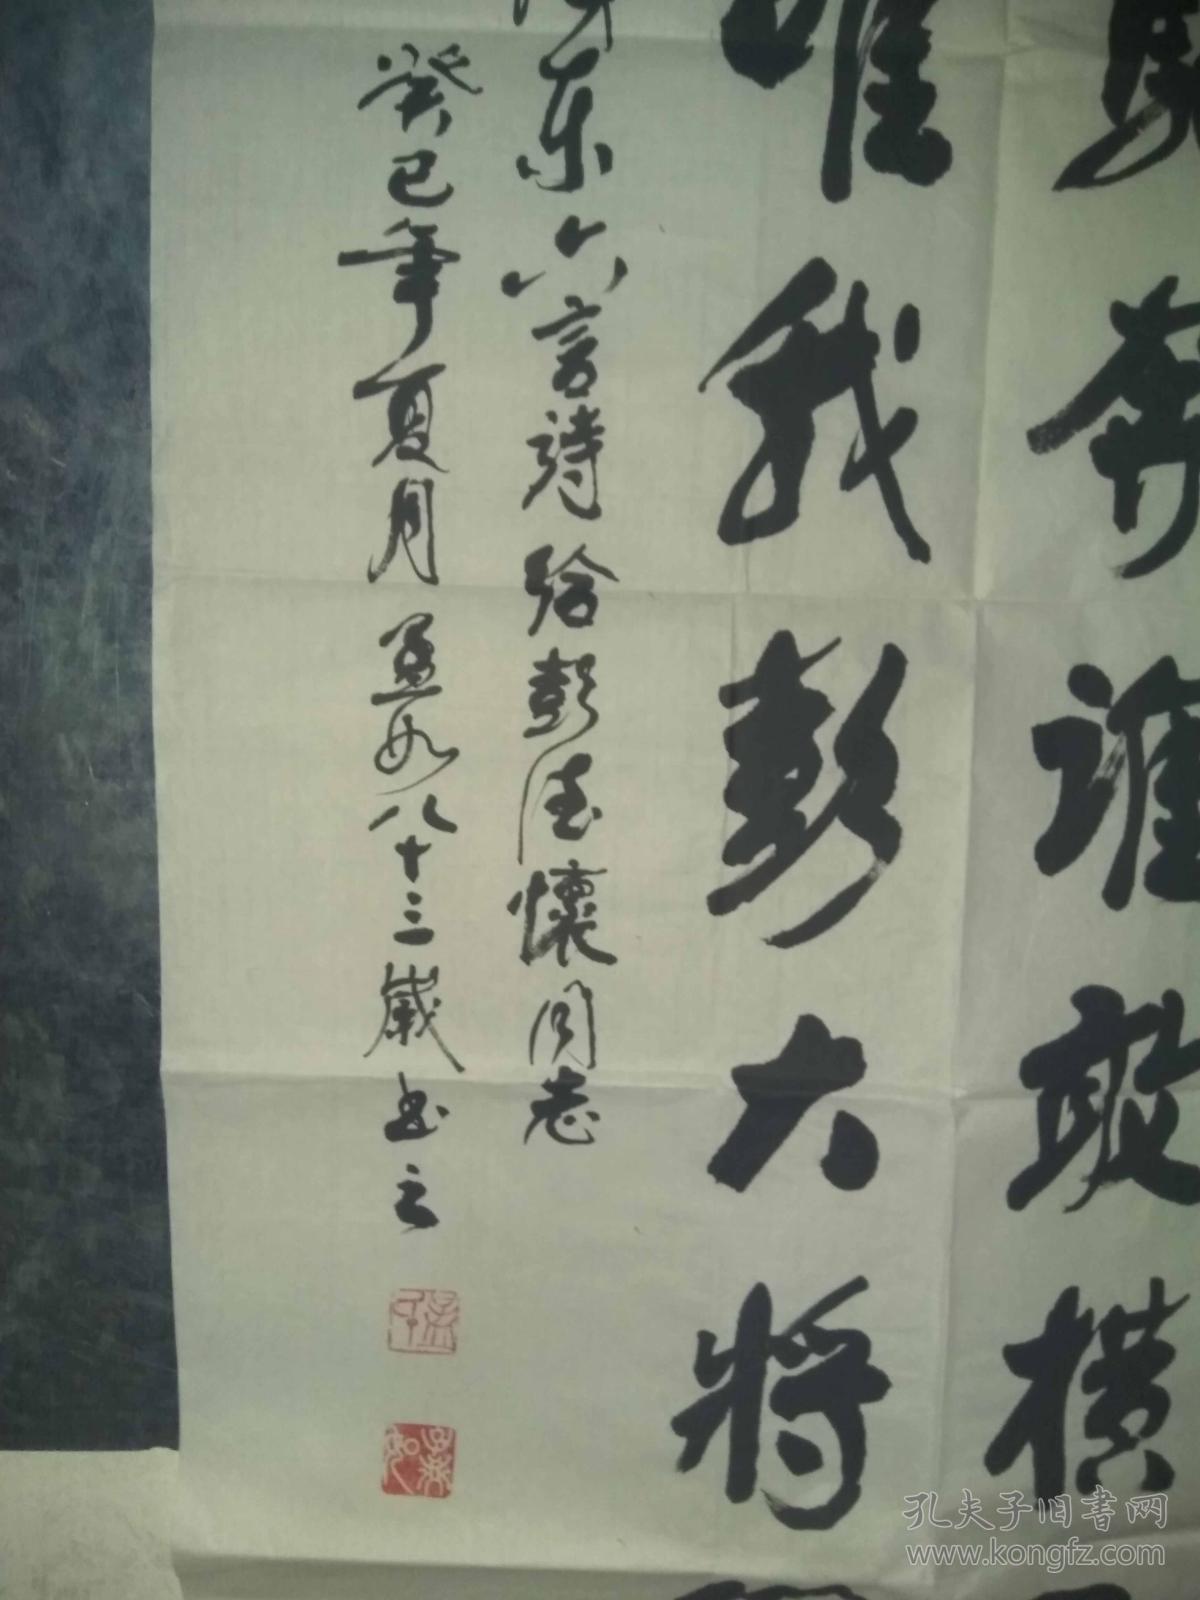 奔谁敢横
唯我彭大将
东六言詩给彭德懷同志
癸巳年夏月如八十三歲书之
孔夫子旧书网
www.kongfz.com